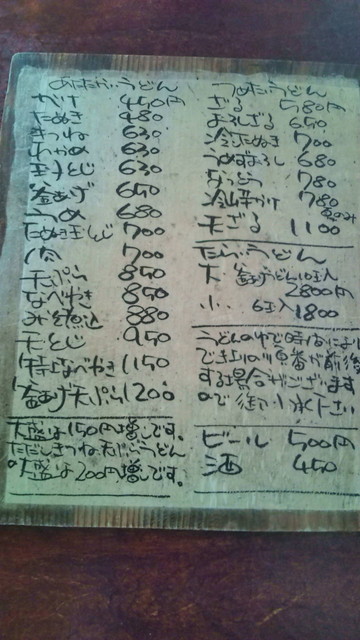 あたたかいうどん
かけ 450円
たぬき 480
きつね 630
わかめ 630
玉子とじ 630
釜あげ 650
うめ 680
たぬき玉とじ 700
肉 700
天ぷら 850
なべやき 850
みそ煮込 880
天とじ 950
特上なべやき 1150
釜あげ天ぷら 1200
大盛は150円増しです。
ただしきつね、天ぷらうどん
の大盛は200円増しです。
つめたいうどん
ざる 580円
おろしざる 650
冷したぬき 700
うめおろし 680
なっとう 780
冷山かけ 780
天ざる 1100
たらいうどん
大 釜あげうどん10玉入
2800円
小 6玉入 1800
うどんのゆで時間によい
でき上りの順番が前後
する場合がございます
ので御了承下さい
ビール 500円
酒 450